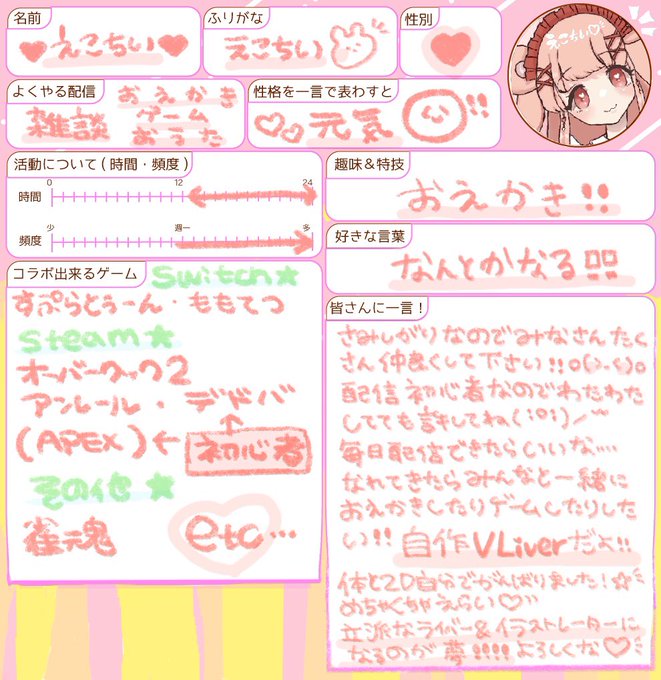 名前
♥えこちい♥
ふりがな
えこちい
性別
♥
えこちい♡
よくやる配信
おえかき
雑談 ゲーム
おうた
性格を一言で表わすと
元気!!
活動について(時間・頻度)
0 12 24
時間
少 週一 多
頻度
趣味&特技
おえかき!!
好きな言葉
なんとかなる!!
コラボ出来るゲーム
Switch★
すぷらとぅーん・ももてつ
steam★
オーバークック2
アンレール・デドバ
(APEX)← 初心者
その他★
雀魂 etc…
皆さんに一言!
さみしがりなのでみなさんたく
さん仲良くして下さい!!
配信初心者なのでわたわた
してても許してね
毎日配信できたらいいな…
なれてきたらみんなと一緒に
おえかきしたりゲームしたりした
い!! 自作VLiverだよ!!
体と2D自分でがんばりました!☆
めちゃくちゃえらい♡
立派なライバー&イラストレーターに
なるのが夢!!!! よろしくな♡